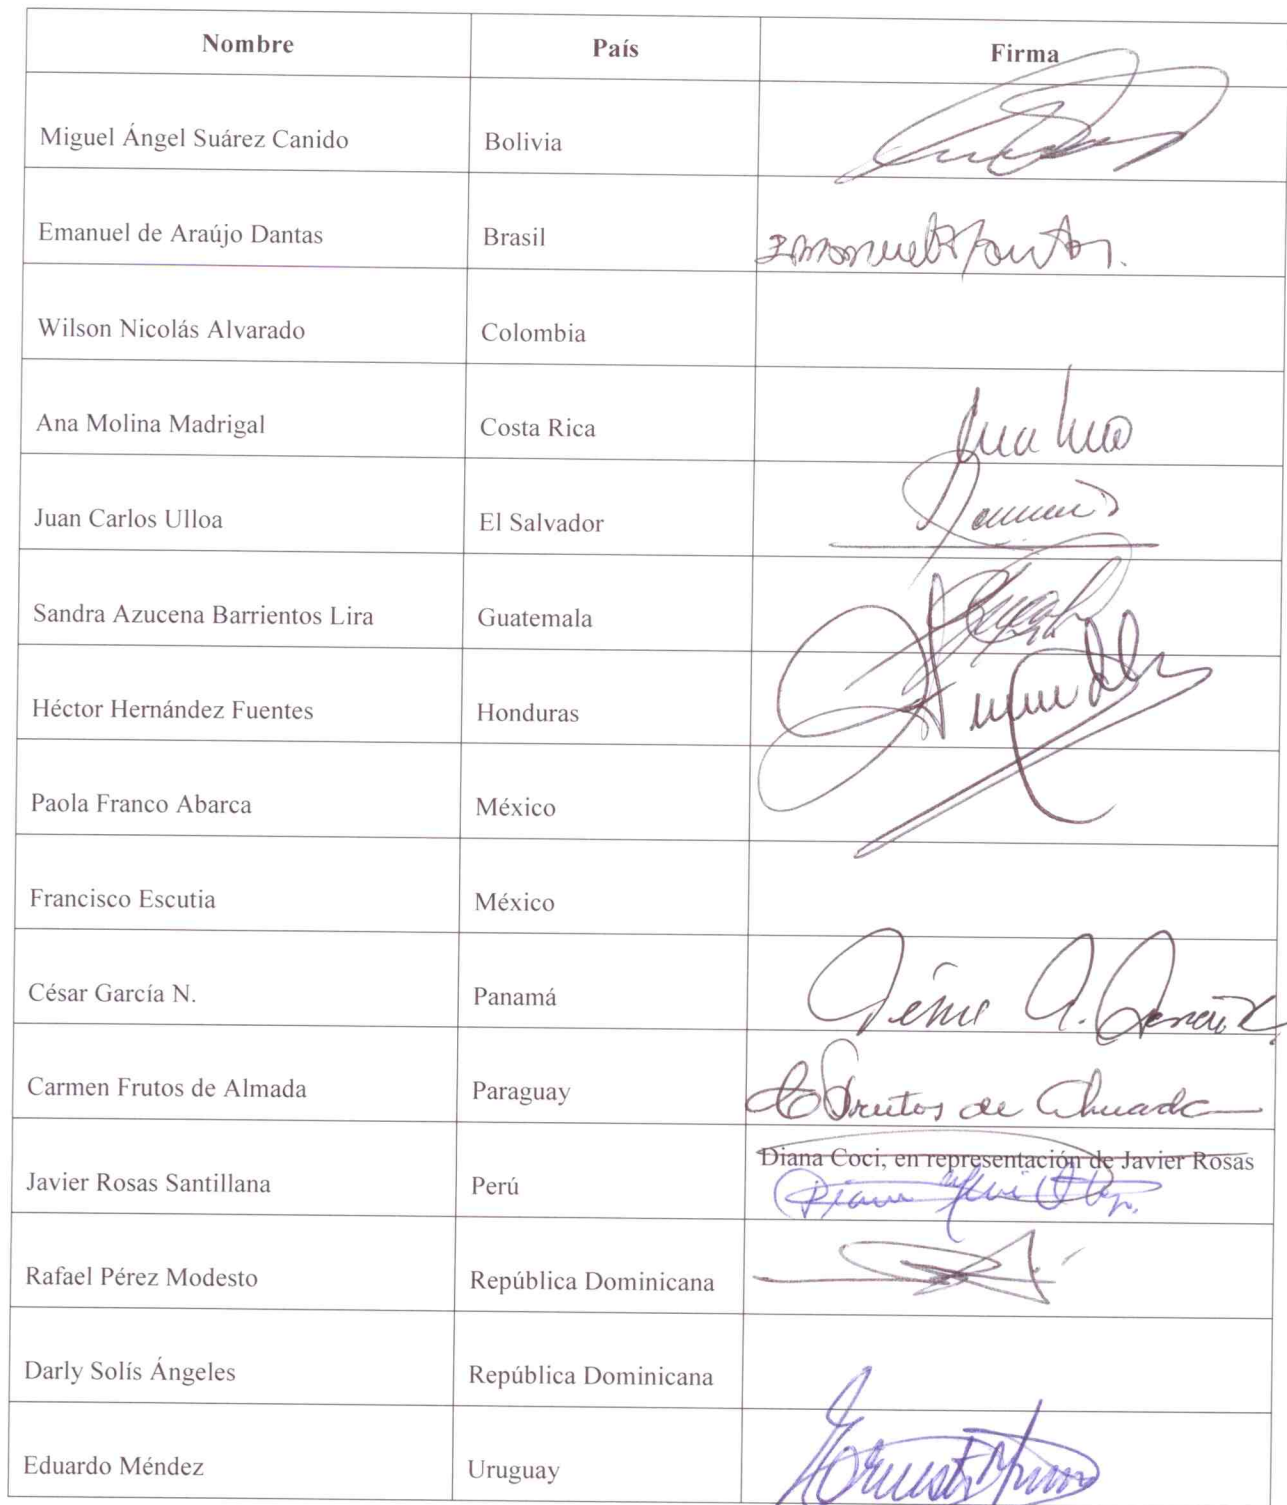 Nombre País Firma
Miguel Ángel Suárez Canido Bolivia
Emanuel de Araújo Dantas Brasil
Wilson Nicolás Alvarado Colombia
Ana Molina Madrigal Costa Rica
Juan Carlos Ulloa El Salvador
Sandra Azucena Barrientos Lira Guatemala
Héctor Hernández Fuentes Honduras
Paola Franco Abarca México
Francisco Escutia México
César García N. Panamá
Carmen Frutos de Almada Paraguay Frutos de Almada
Diana Coci, en representación de Javier Rosas
Javier Rosas Santillana Perú
Rafael Pérez Modesto República Dominicana
Darly Solís Ángeles República Dominicana
Eduardo Méndez Uruguay